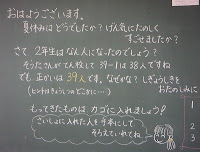 おはようございます。
夏休みは どうでしたか？げん気にたのしく
すごせましたか？
さて 2年生は なん人になったのでしょう？
そうたさんが てん校して 39-1は 38人ですね
でも 正かいは 39人です。なぜかな？しぎょうしきを
おたのしみに
(ヒントはきょうしつのどこかに…)
もってきたものは カゴに入れましょう！
さいしょに入れた人を手本にして
そろえていれてね
1
2
3